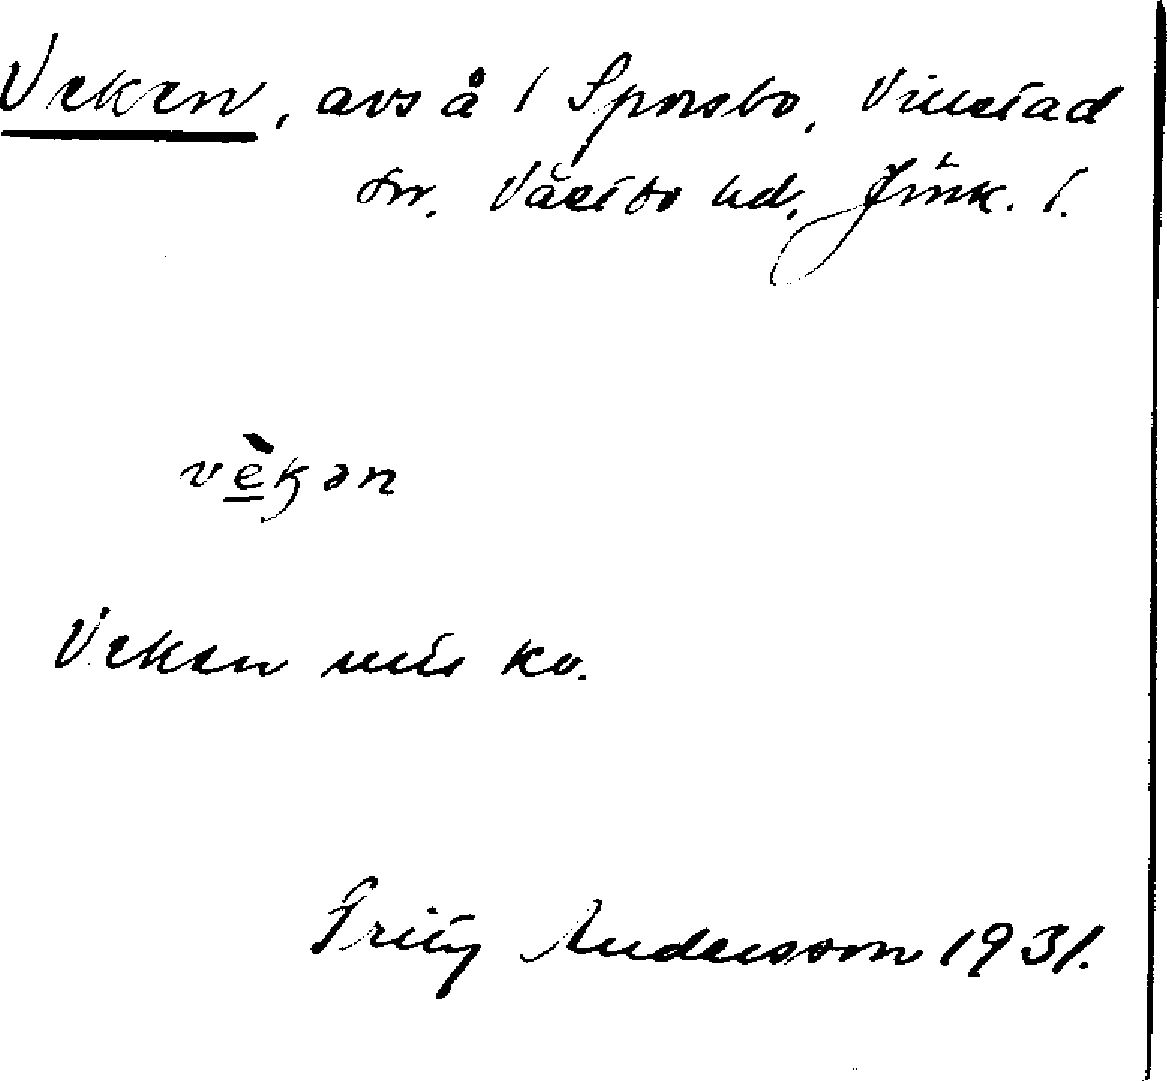 Veken, avs å i Sporsbo, Villstad
sn. Västbo hd. Jönk. l.
vèkən
Veken ko.
Fritz Andersson 1931.